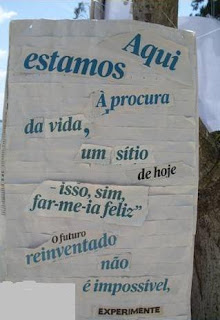 Aqui
estamos
À procura
da vida,
um sítio
de hoje
- isso, sim,
far-me-ia feliz"
O futuro
reinventado
não
é impossível,
EXPERIMENTE